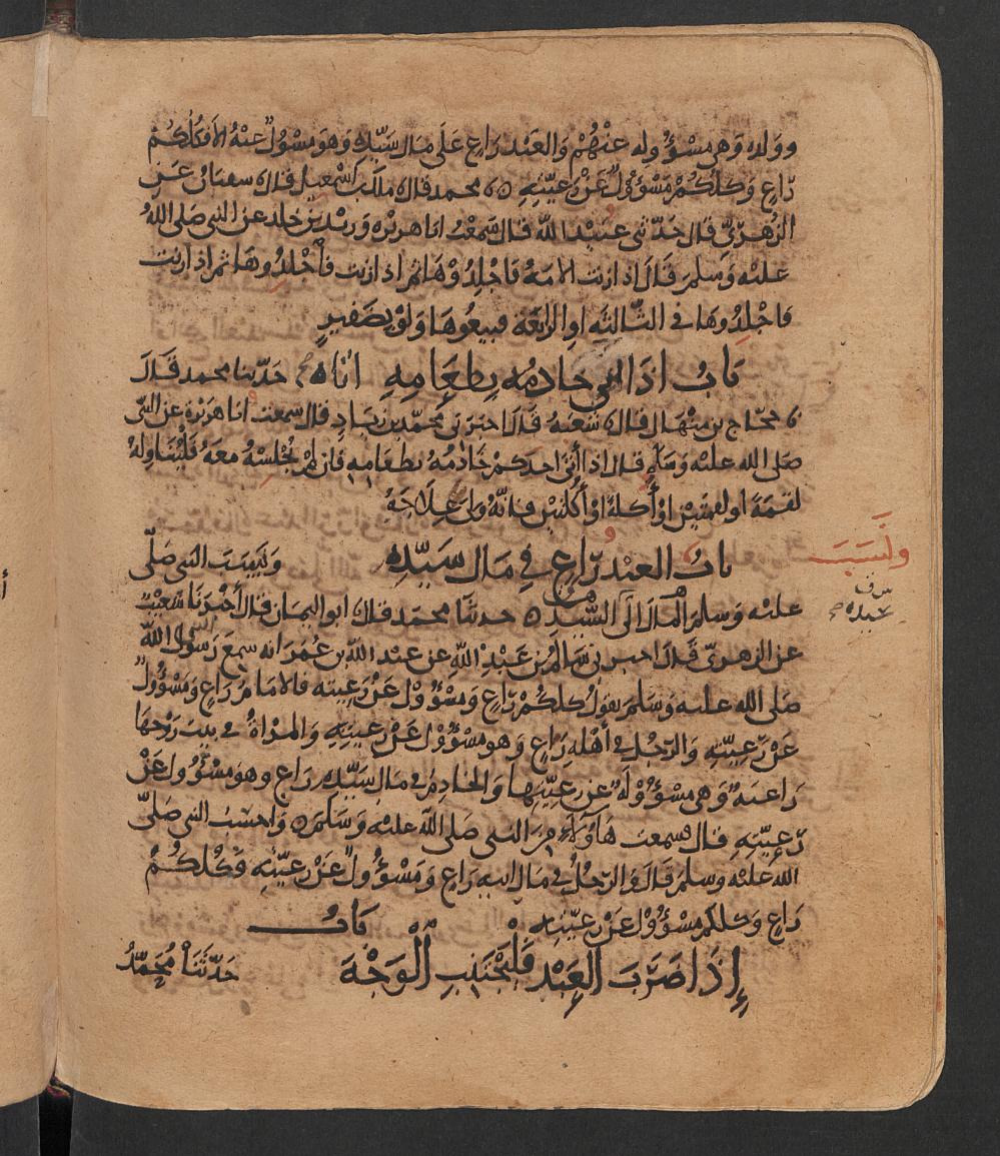 وولده وهى مسؤوله عنهم والعبد راع على مال سيده وهو مسؤول عنه الا فكلكم
راع وكلكم مسؤول عن رعيته محمد قال ملك بن اسمعيل قال سفيان عن
الزهرى قال حدثنى عبيد الله قال سمعت ابا هريرة وزيد بن خلد عن النبى صلى الله
عليه وسلم قال اذا زنت الامة فاجلدوها ثم اذا زنت فاجلدوها ثم اذا زنت
فاجلدوها فى الثالثه او الرابعة فبيعوها ولو بضفير
باب اذا اتى خادمه بطعامه حدثنا محمد قال
حجاج بن منهال قال شعبة قال اخبرنى محمد بن زياد قال سمعت ابا هريرة عن النبى
صلى الله عليه وسلم قال اذا أتى احدكم خادمه بطعامه فان لم يجلسه معه فليناوله
لقمة او لقمتين او أكلة او أكلتين فانه ولى علاجه
باب العبد راع فى مال سيده ونسب النبى صلى
عليه وسلم المال الى السيد حدثنا محمد قال ابو اليمان قال أخبرنا شعيب
عن الزهرى قال اخبرنى سالم بن عبد الله عن عبد الله بن عمر انه سمع رسول الله
صلى الله عليه وسلم يقول كلكم راع ومسؤول عن رعيته فالامام راع ومسؤول
عن رعيته والرجل فى أهله راع وهو مسؤول عن رعيته والمرأة فى بيت زوجها
راعية وهى مسؤولة عن رعيتها والخادم فى مال سيده راع وهو مسؤول عن
رعيته قال سمعت هاؤلاء من النبى صلى الله عليه وسلم واحسب النبى صلى
الله عليه وسلم قال والرجل فى مال ابيه راع ومسؤول عن رعيته فكلكم
راع وكلكم مسؤول عن رعيته باب
إذا ضرب العبد فليجتنب الوجه حدثنا محمد
ونسب